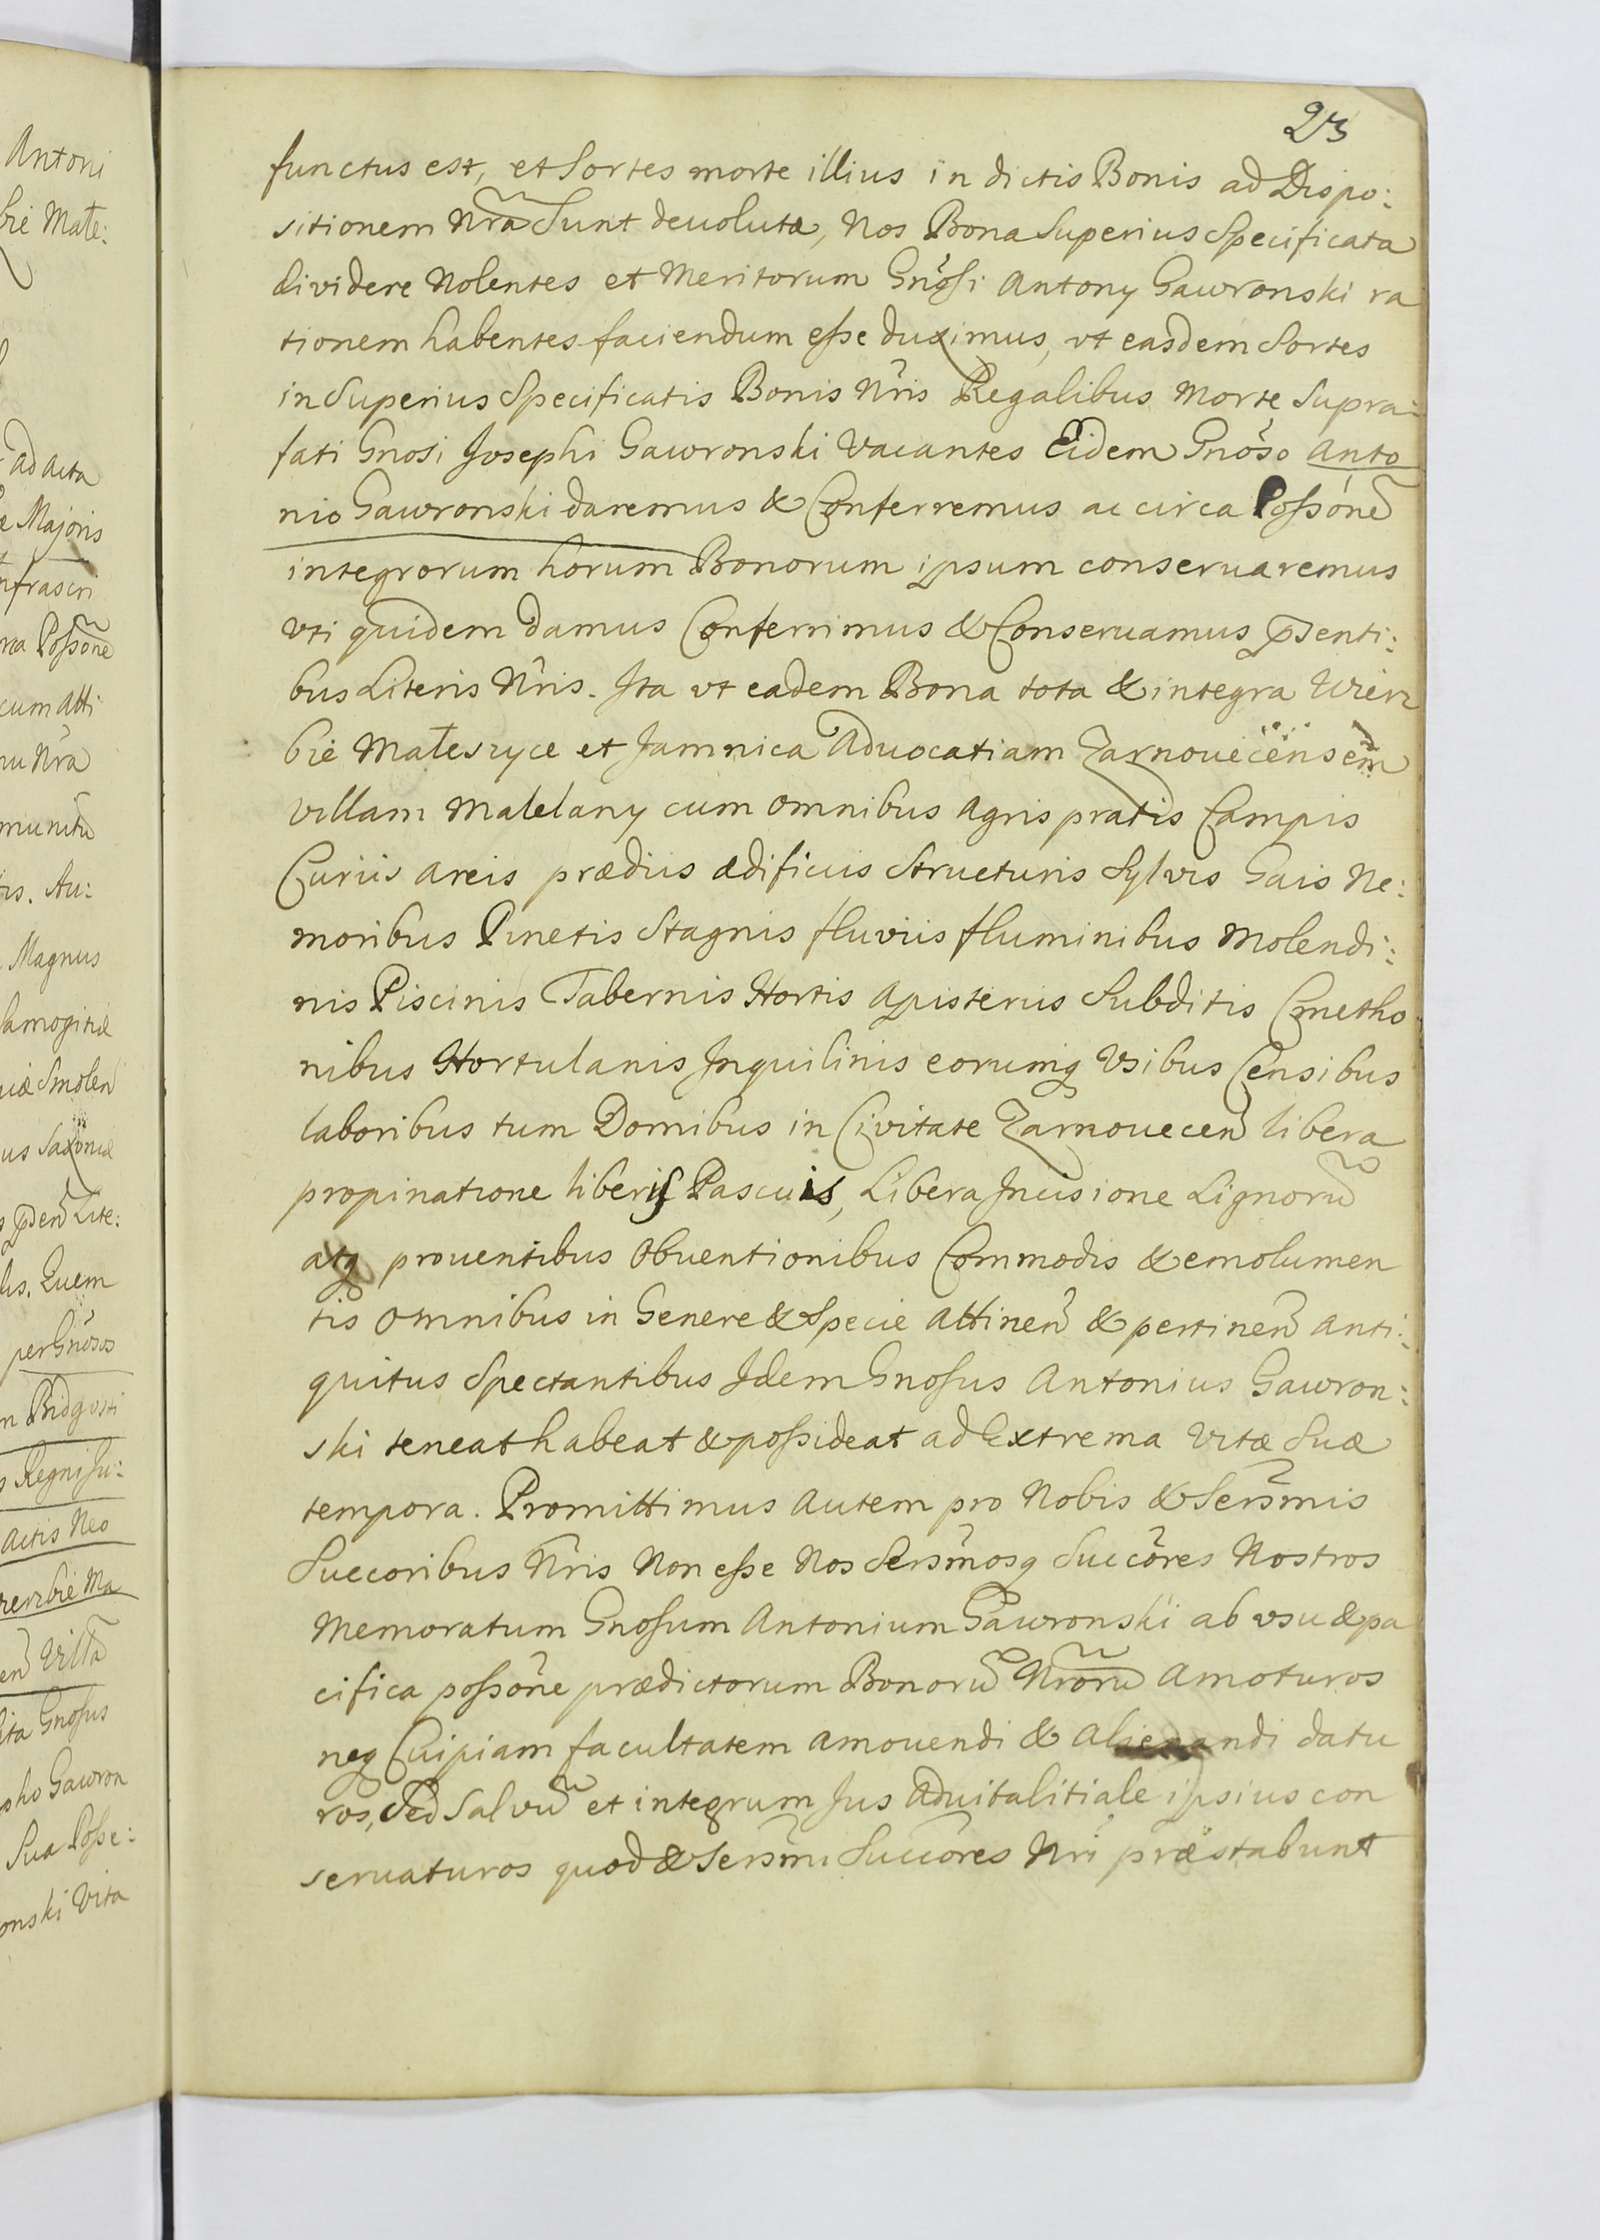 23
functus est, et Sortes morte illius in dictis Bonis ad Dispo:
sitionem Nrã Sunt devolutæ, Nos Bona Superius Specificata
dividere Nolentes et Meritorum Gnõsi Antony Gawronski ra
tionem habentes faciendum esse duximus, vt easdem Sortes
in Superius Specificatis Bonis Nris Regalibus Morte Supra:
fati Gnosi Josephi Gawronski Vacantes Eidem Gnõso Anto
nio Gawronski daremus & Conferremus ac circa Possõne
integrorum horum Bonorum ipsum conseruaremus
vti quidem damus Conferrimus & Conseruamus pñsenti:
bus Literis Nris. Ita vt eadem Bona tota & integra Wierz
bie Małeszyce et Jamnica Aduocatiam Zarnouecensem
villam Malelany cum omnibus Agris pratis Campis
Curiis areis prædiis ædificiis Structuris Sylvis Gais Ne:
moribus Pinetis Stagnis fluviis fluminibus Molendi:
nis Piscinis Tabernis Hortis Apisteriis Subditis Cmetho
nibus Hortulanis Inquilinis eorumq Vsibus Censibus
laboribus tum Domibus in Civitate Zarnouecen libera
propinatione liberis Pascuis, Libera Incisione Lignorũ
atq prouentibus Obuentionibus Commodis & emolumen
tis omnibus in Genere & Specie Attinen & pertinen Anti:
quitus Spectantibus Idem Gnosus Antonius Gawron:
ski teneat habeat & possideat ad Extrema Vitæ Suæ
tempora. Promittimus Autem pro Nobis & Sersmis
Succoribus Nris Non esse Nos Sersmosq Succores Nostros
Memoratum Gnosum Antonium Gawronski ab vsu & pa
cifica possõne prædictorum Bonorũ Nrorũ Amoturos
neq Cuipiam facultatem Amouendi & Alienandi datu
ros, Sed Salvũ et integrum Jus Aduitalitiale ipsius con
seruaturos quod & Sersmi Succores Nri præstabunt